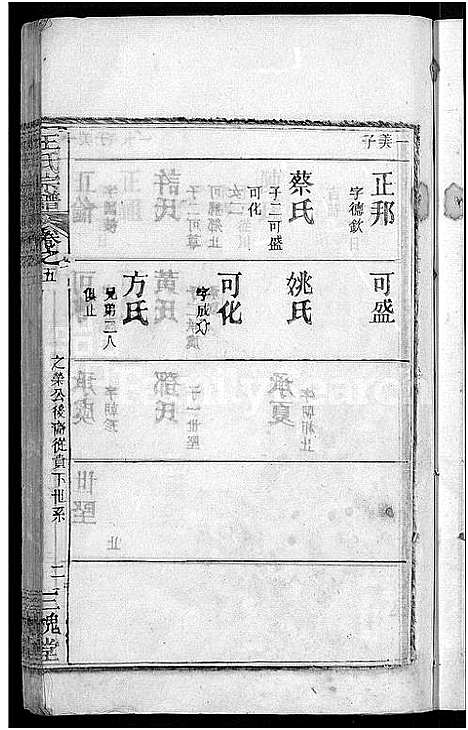 一美子
正邦
字德欽
蔡氏
子二可盛
可化
可盛
姚氏
可化
字成文
方氏
兄弟二人
俱止
王氏宗譜
卷之五
之榮公後裔從貴下世系
二
三槐堂